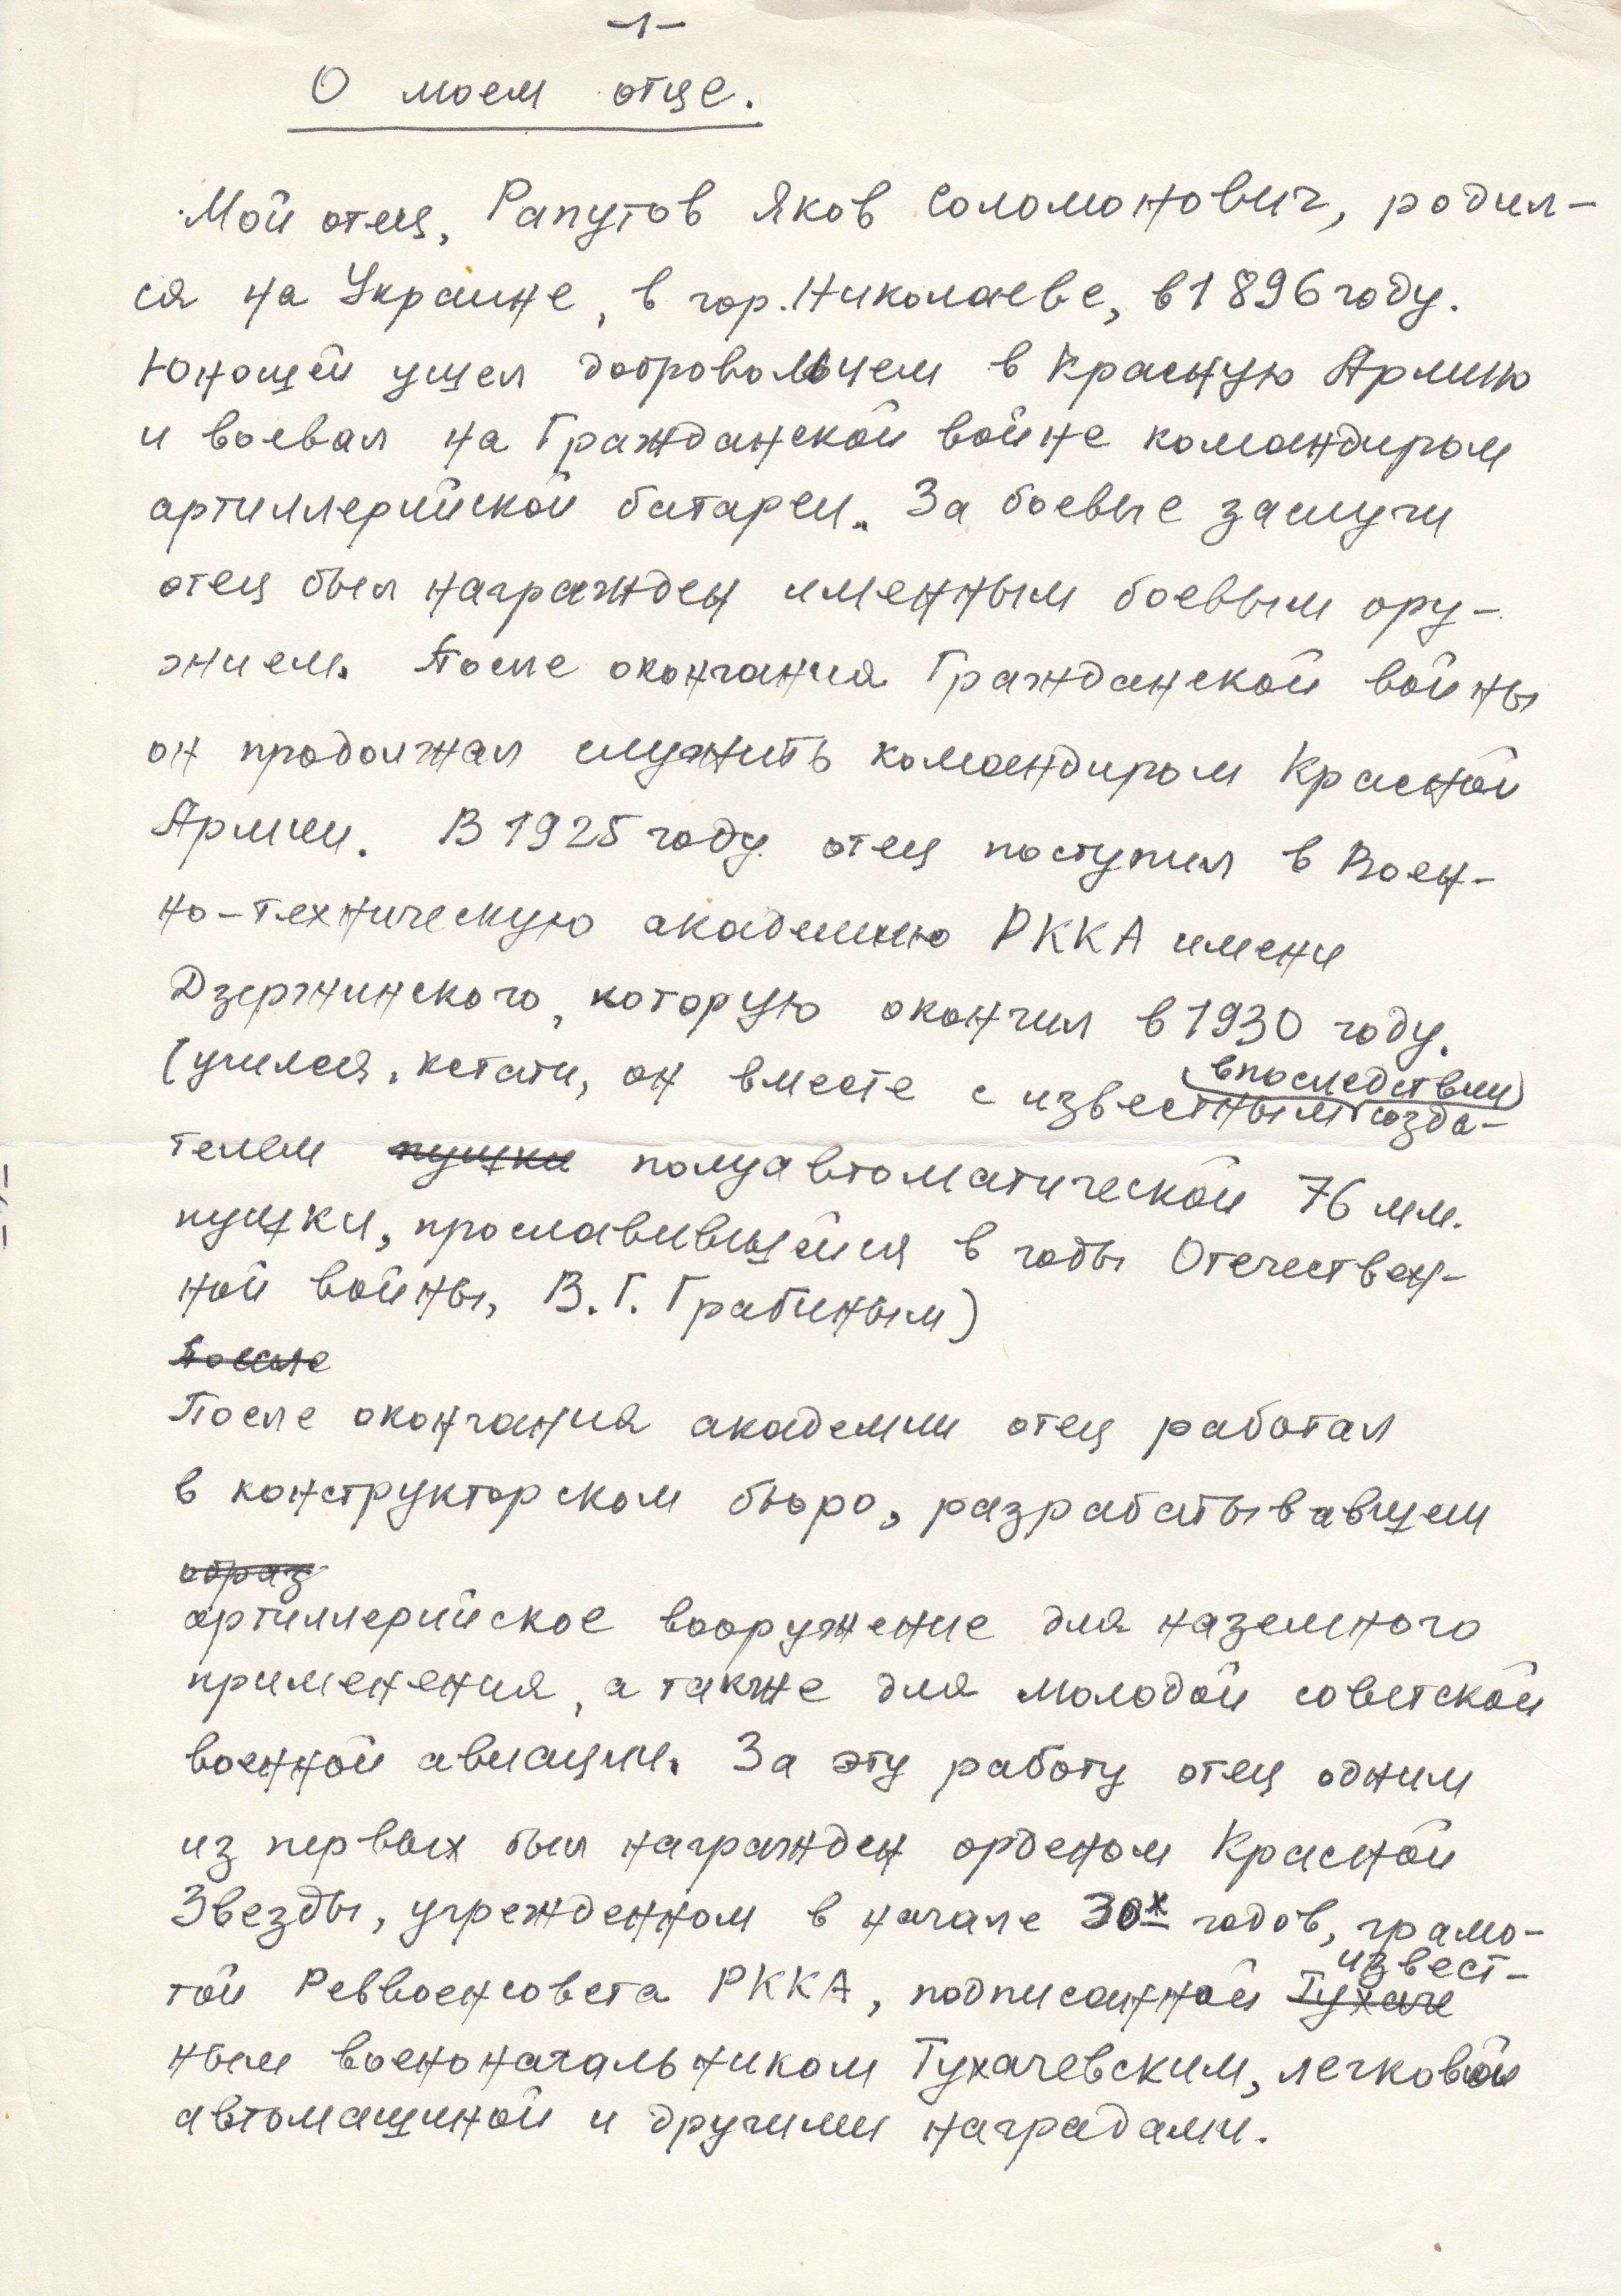 -1-
О моем отце.
Мой отец, Рапутов Яков Соломонович, родил-
ся на Украине, в гор. Николаеве, в 1896 году.
Юношей ушел добровольцем в Красную Армию
и воевал на Гражданской войне командиром
артиллерийской батареи. За боевые заслуги
отец был награжден именным боевым ору-
жием. После окончания Гражданской войны
он продолжал служить командиром Красной
Армии. В 1925 году отец поступил в Воен-
но-техническую академию РККА имени
Дзержинского, которую окончил в 1930 году.
(учился, кстати, он вместе с известным впоследствии созда-
телем пушки полуавтоматической 76 мм.
пушки, прославившейся в годы Отечествен-
ной войны, В.Г. Грабиным)
После
После окончания академии отец работал
в конструкторском бюро, разрабатывавшем
образ
артиллерийское вооружение для наземного
применения, а также для молодой советской
военной авиации. За эту работу отец одним
из первых был награжден орденом Красной
Звезды, учрежденном в начале 30х годов, грамо-
той Реввоенсовета РККА, подписанной Тухаче извест-
ным военоначальником Тухачевским, легковой
автомашиной и другими наградами.